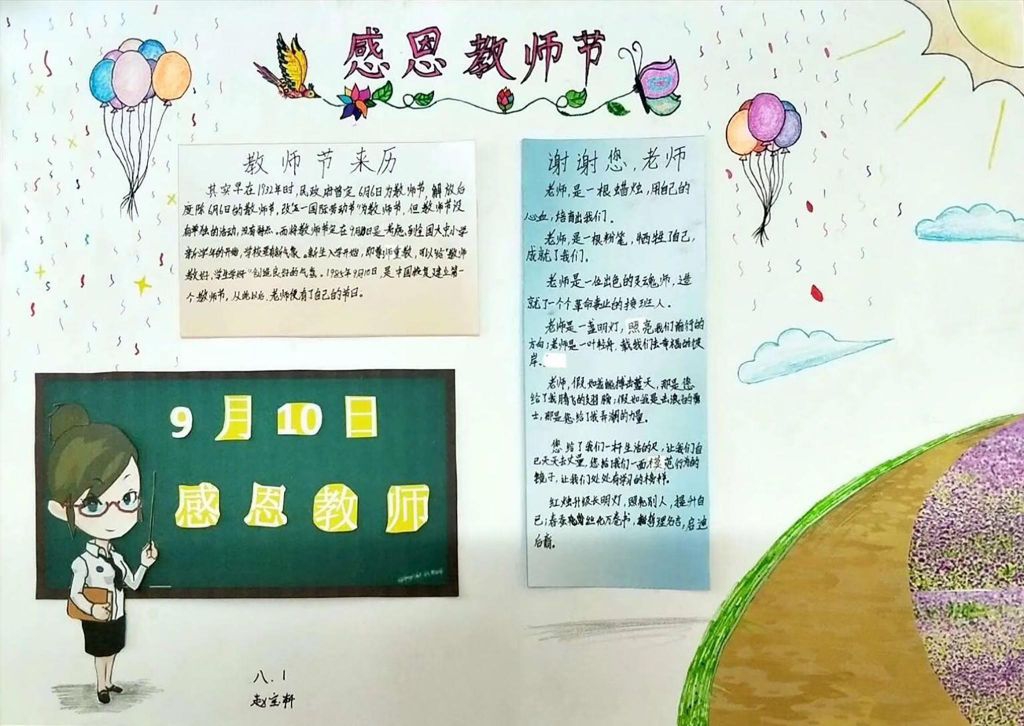 感恩教师节
教师节来历
其实早在1932年时,民政府曾定6月6日为教师节,解放后
废除6月6日的教师节,改五一国际劳动节"为教师节,但教师节没
有单独的活动,没有特点。而将教师节定在9月10日是考虑到全国大中小学
新学年的开始,学校要有新气象。新生入学开始,即尊师重教,可以给"教师
教好,学生学好"创造良好的气氛。1985年9月10日,是中国恢复建立第一
个教师节,从此以后,老师便有了自己的节日。
谢谢您,老师
老师,是一根蜡烛,用自己的
心血,培育出我们。
老师,是一根粉笔,牺牲了自己,
成就了我们。
老师是一位出色的灵魂师,造
就了一个个革命事业的接班人。
老师是一盏明灯,照亮我们前行的
方向;老师是一叶轻舟,载我们去幸福的彼
岸。
老师,假如我能搏击蓝天,那是您
给了我腾飞的翅膀;假如我是击浪的勇
士,那是您给了我弄潮的力量。
您给了我们一杆生活的尺,让我们自
己天天去丈量,您给我们一面模范行为的
镜子,让我们处处有学习的榜样。
红烛升级长明灯,照亮别人,提升自
己;春蚕
万卷书,
启迪
后裔。
9月10日
感恩教师
八.1